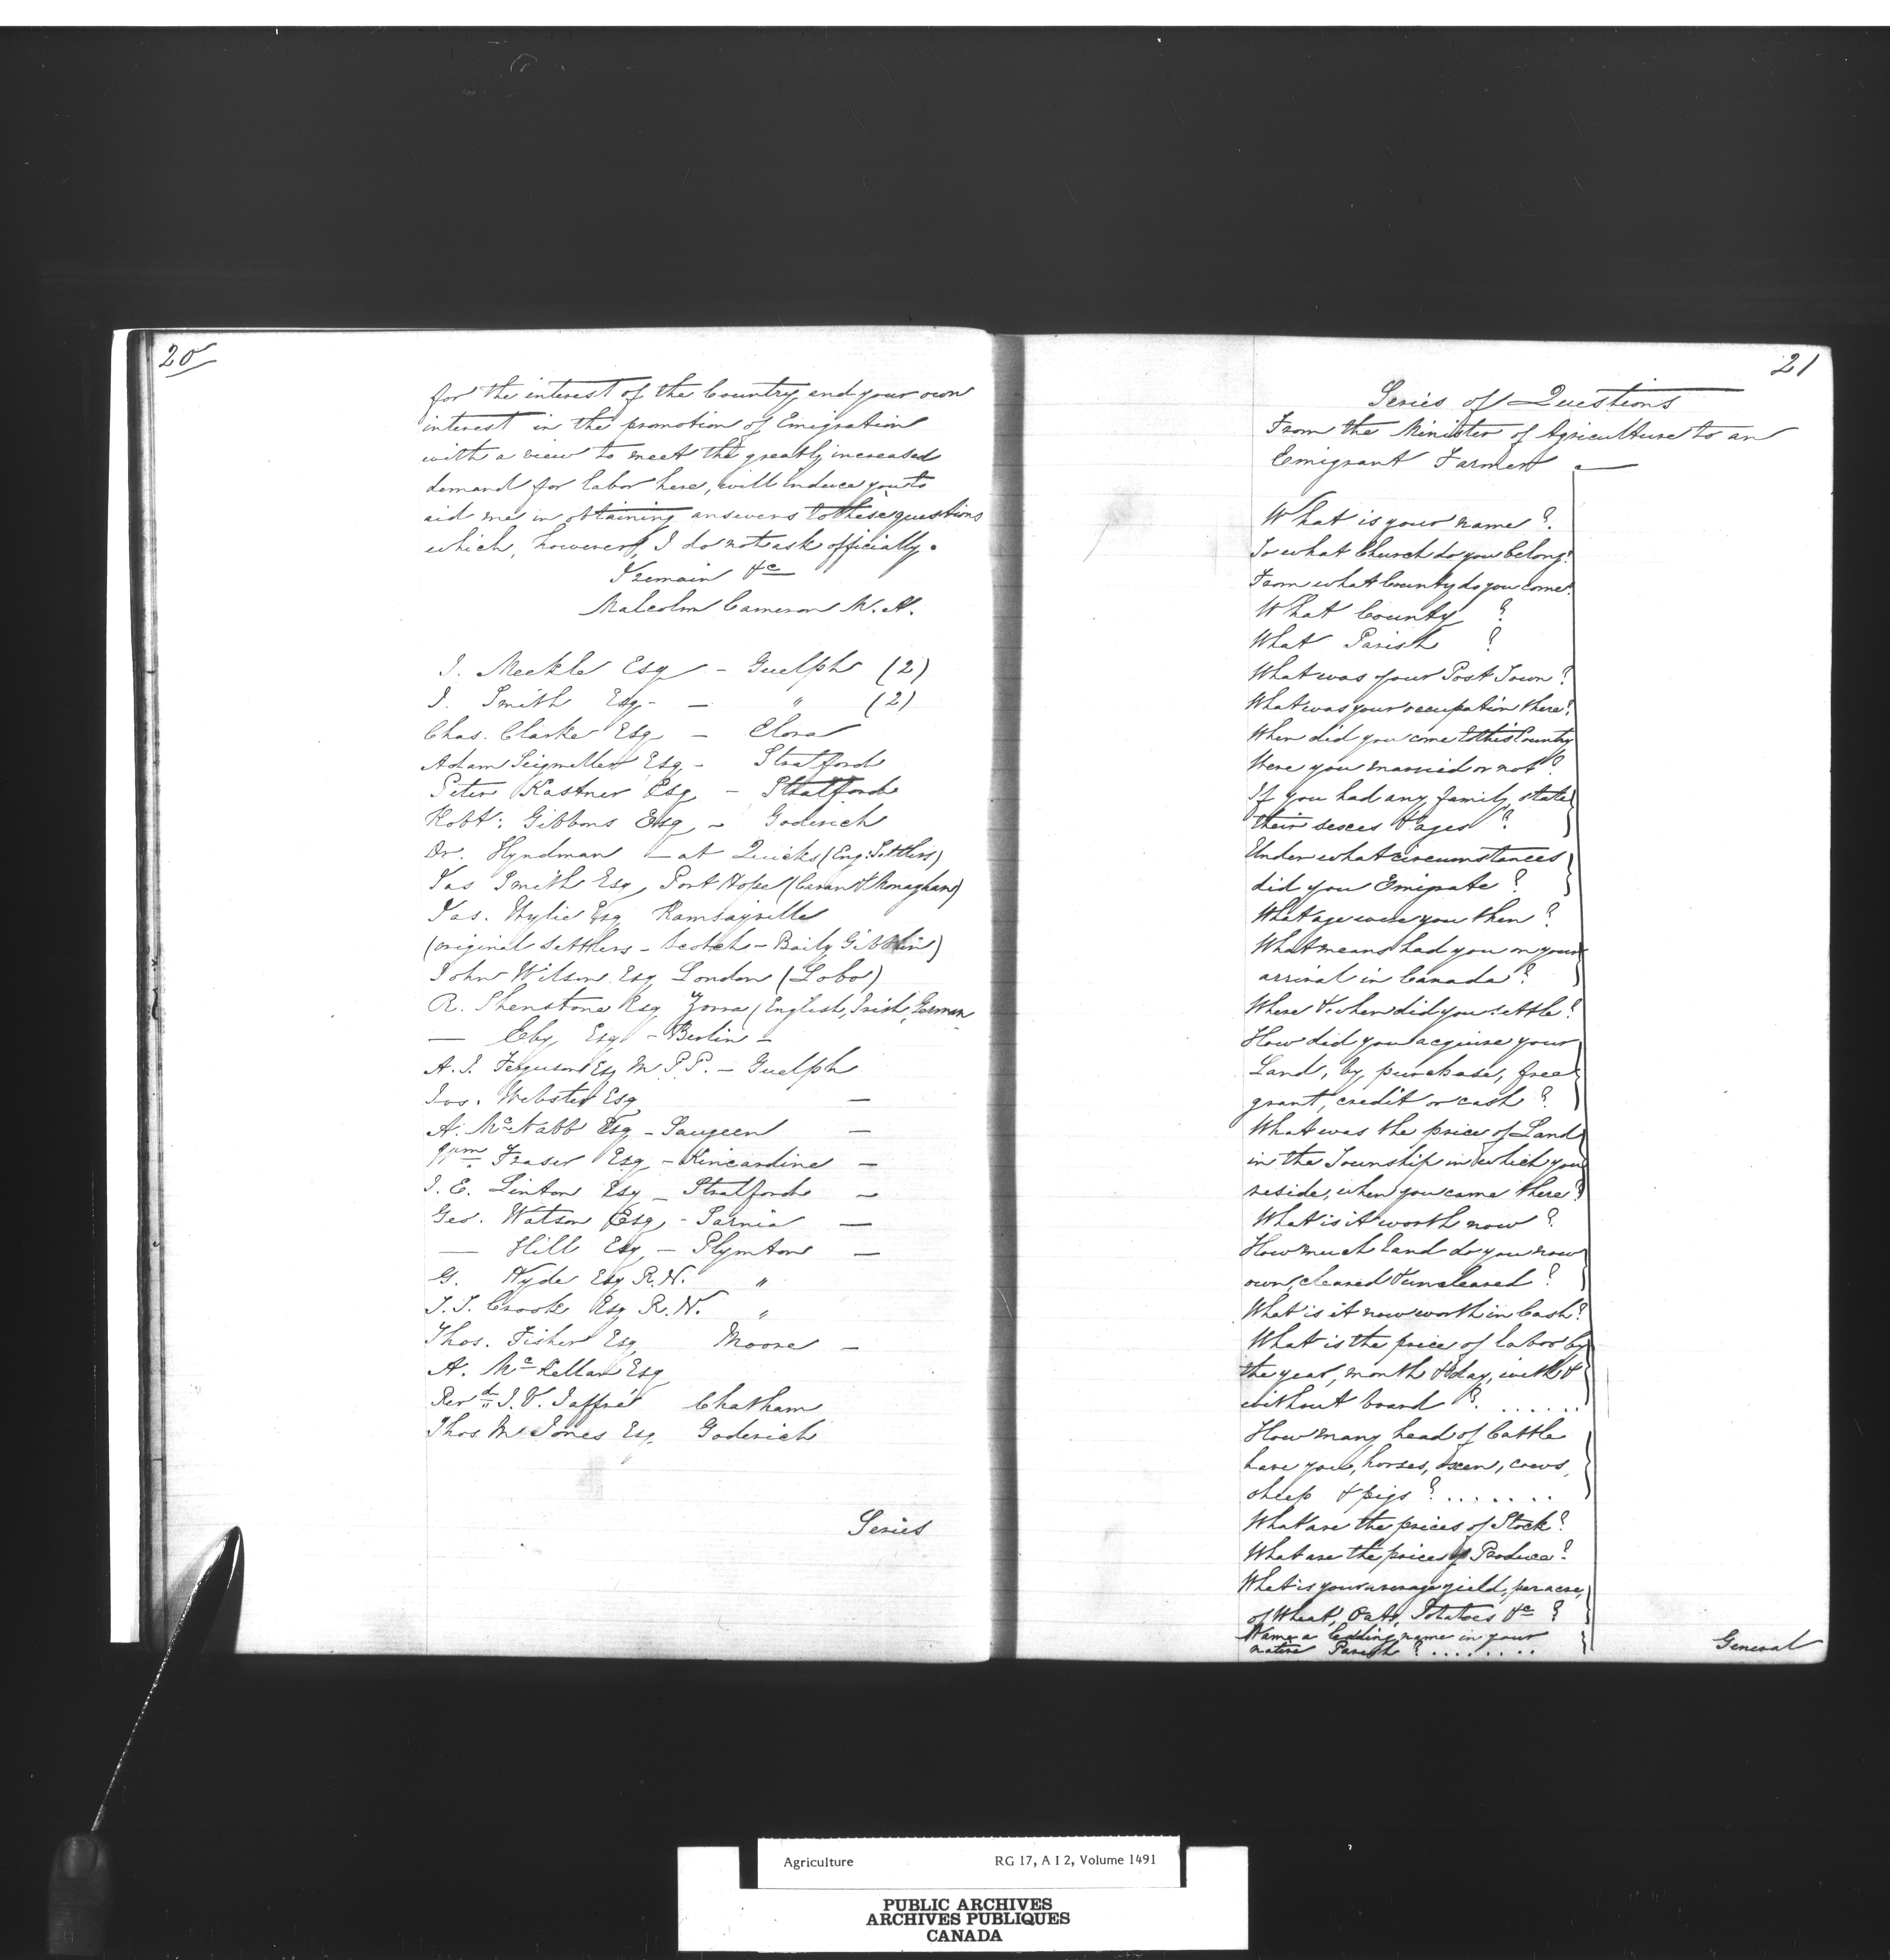 20
for the interest of the Country, and your own
interest in the promotion of Emigration
with a view to meet the greatly increased
demand for labor here, will induce you to
aid me in obtaining answers to these questions
which, however, I do not ask officially.
I remain &c
Malcolm Cameron M.A.
J. Meekle Esq - Guelph (2)
J. Smith Esq - " (2)
Chas. Clarke Esq - Elora
Adam Seigmiller Esq - Stratford
Peter Kastner Esq - Stratford
Robt: Gibbons Esq - Goderich
Dr. Hyndman - at Quicks (Eng: Settlers)
Jas Smith Esq Port Hope (Cavan & Monaghan)
Jas. Wylie Esq Ramsayville
(original Settlers - Scotch - Baily Giblin)
John Wilson Esq London (Lobo)
R. Shenstone Esq Zorra (English, Irish, German
— Eby Esq - Berlin -
A. J. Ferguson Esq M.P.P. - Guelph
Jas. Webster Esq —
A. McNabb Esq - Saugeen —
Wm. Fraser Esq - Kincardine —
J. E. Linton Esq - Stratford —
Geo. Watson Esq - Sarnia —
— Hill Esq - Plymton —
G. Hyde Esq R.N. "
T. J. Crooke Esq R.N. "
Thos. Fisher Esq Moore —
A. McKellar Esq
Revd. J. V. Jaffré Chatham
Thos M Jones Esq Goderich
Series
21
Series of Questions
From the Minister of Agriculture to an
Emigrant Farmer —
What is your name?
To what Church do you belong?
From what Country do you come?
What County ?
What Parish ?
What was your Post Town?
What was your occupation there?
When did you come to this Country
Were you married or not?
If you had any family, state
their sexes & ages ?
Under what circumstances
did you Emigrate ?
What age were you then ?
What means had you on your
arrival in Canada ?
Where & when did you settle?
How did you acquire your
Land, by purchase, free
grant, credit or cash ?
What was the price of Land
in the Township in which you
reside, when you came there?
What is it worth now ?
How much land do you now
own, cleared & uncleared ?
What is it now worth in Cash?
What is the price of labor by
the year, month & day, with &
without board ? . . . . . .
How many head of Cattle
have you, horses, oxen, cows,
sheep & pigs ? . . . . . . .
What are the prices of Stock?
What are the prices of Produce?
What is your average yield, per acre,
of Wheat, Oats, Potatoes &c ?
Name a leading name in your
native Parish ? . . . . . . . .
General
Agriculture RG 17, A I 2, Volume 1491
PUBLIC ARCHIVES
ARCHIVES PUBLIQUES
CANADA